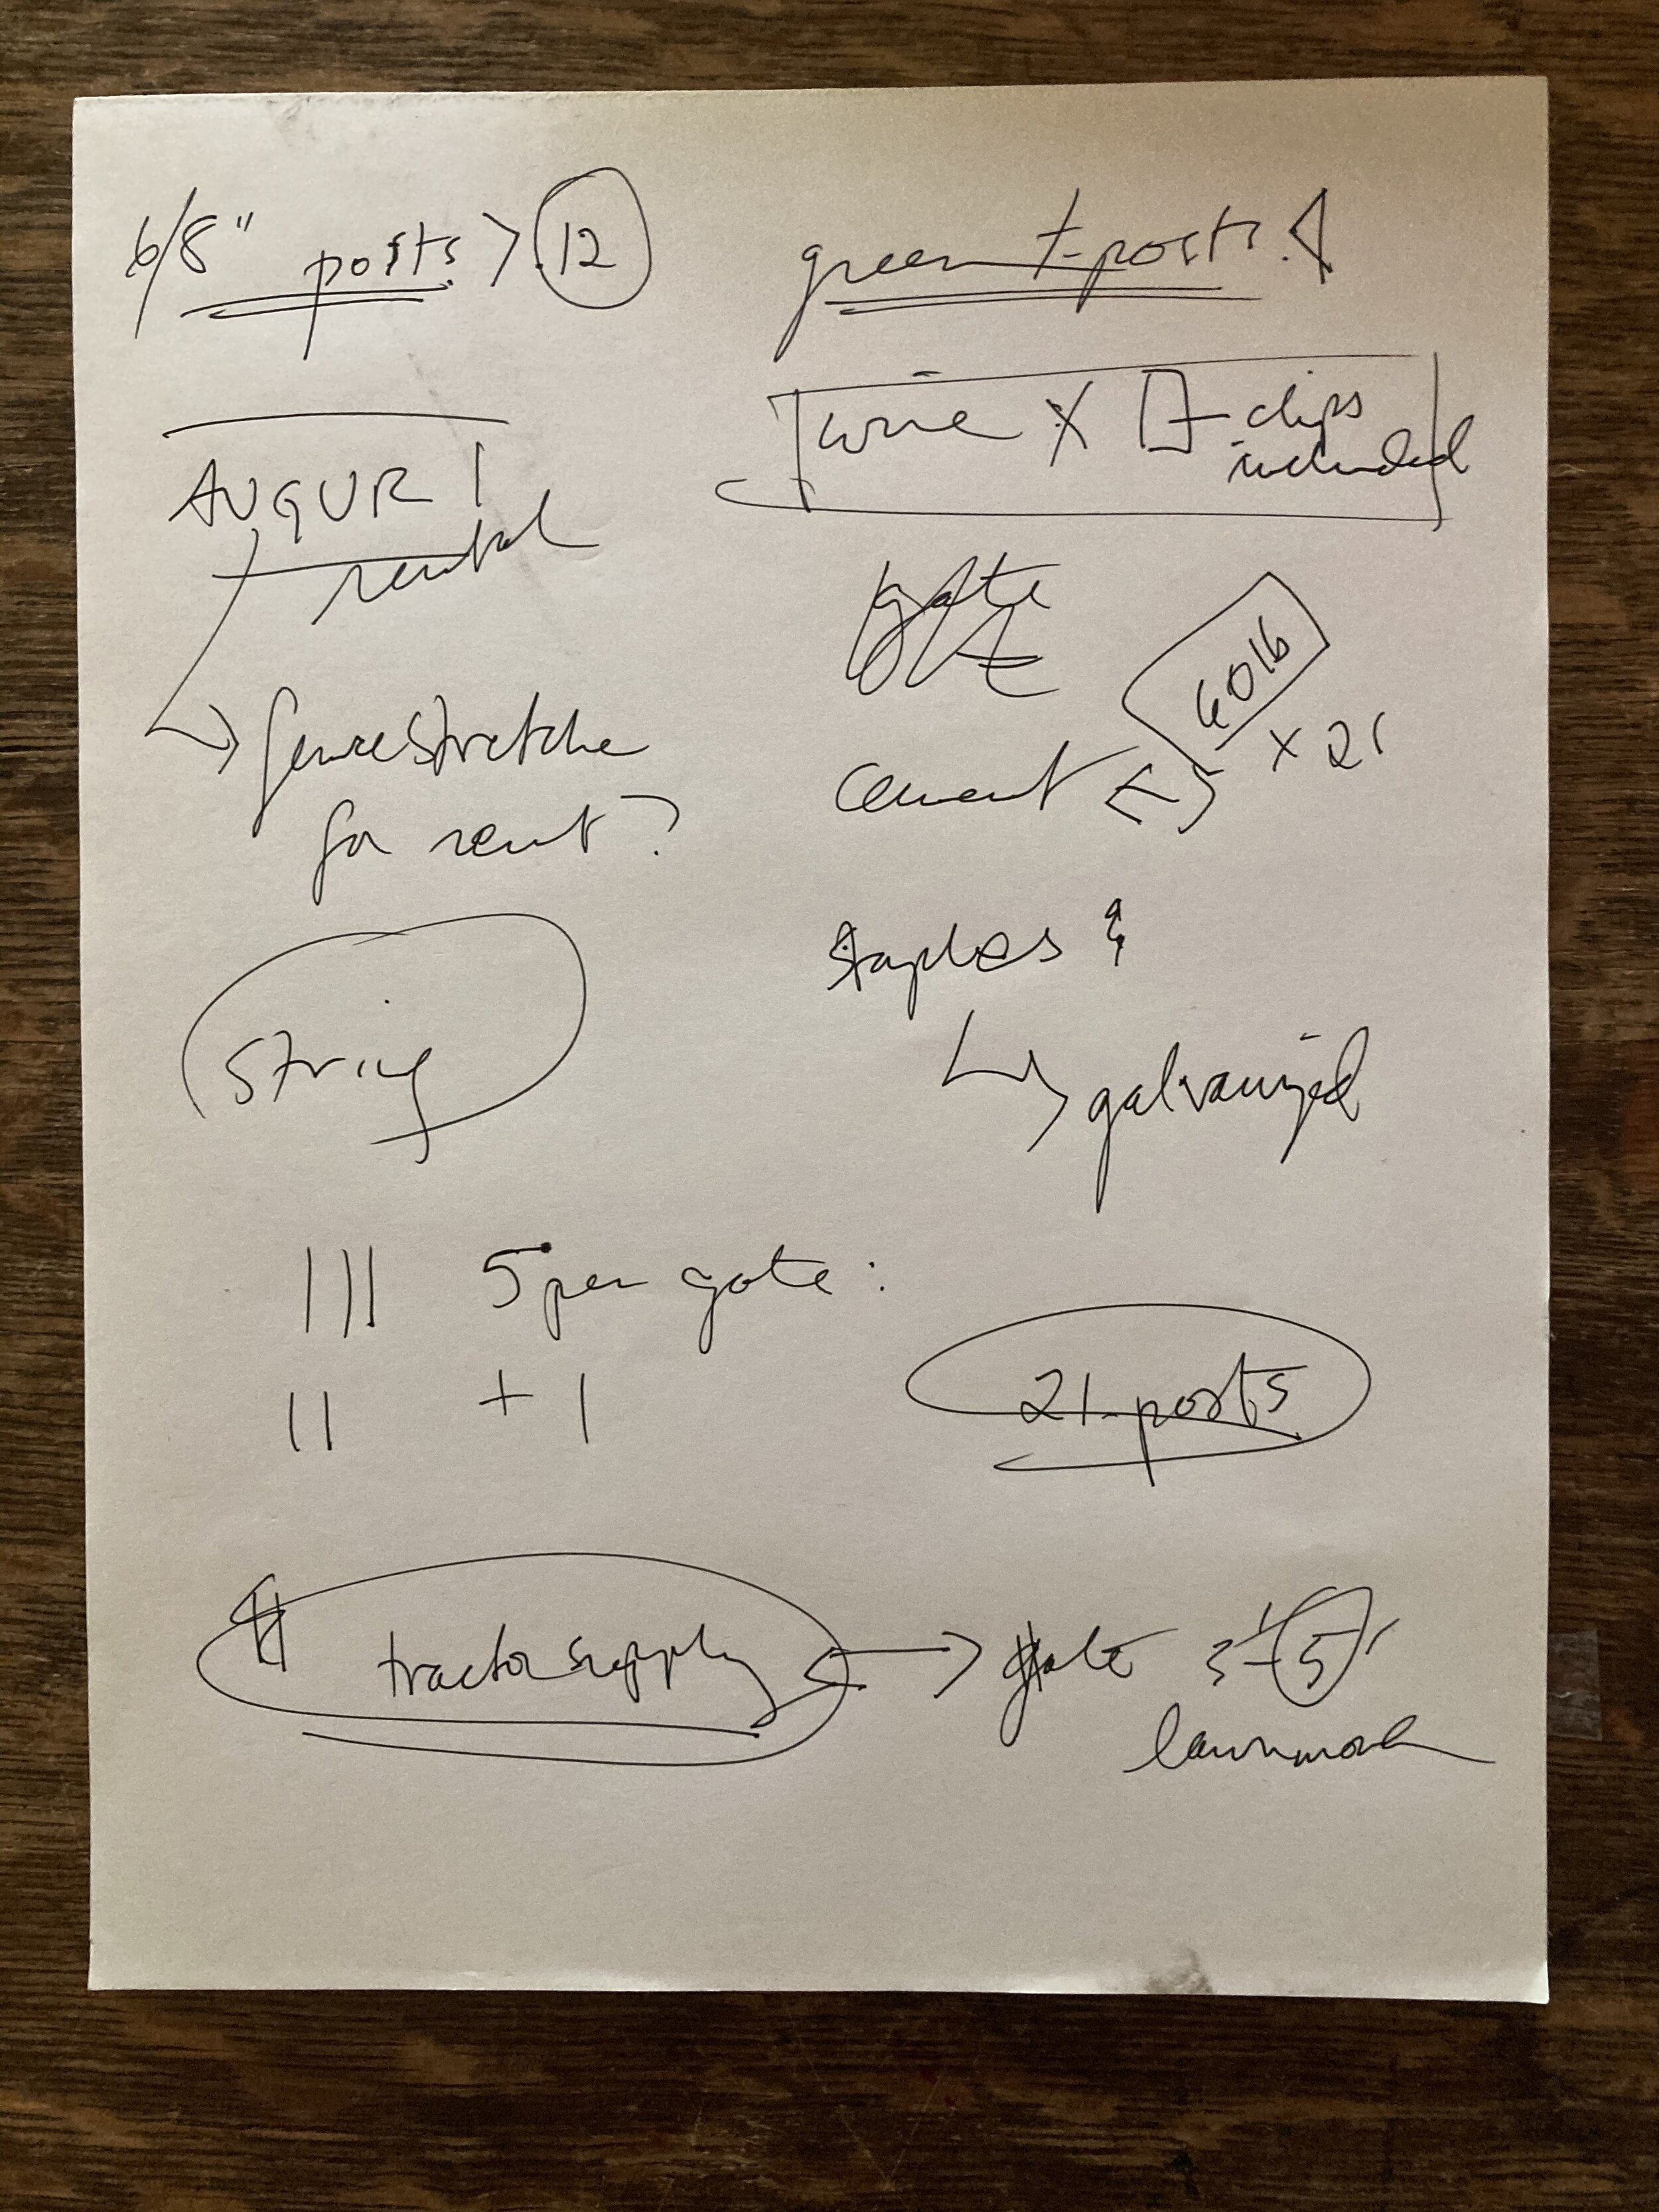 6/8" posts > 12
green t-posts
AUGUR!
rental
wire X clips
included
gate
60lb
cement x 21
fence stretcher
for rent?
staples &
galvanized
string
||| 5 per gate:
|| + 1
21 posts
tractor supply → gate 3-5'
lawnmower